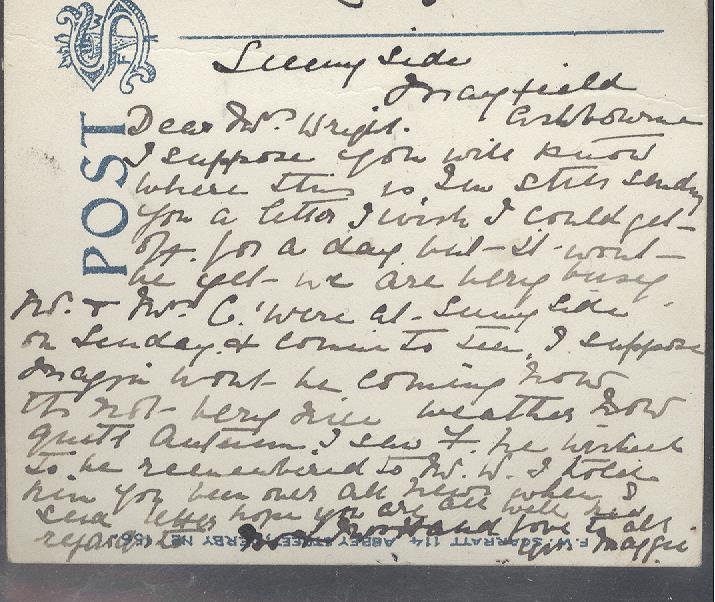 POST
Sunny Side
Mayfield
Ashbourne
Dear Mrs Wright.
I suppose you will know
where this is I'm still sending
you a letter I wish I could get
off for a day but it wont
be yet we are very busy.
Mr. & Mrs C. were at Sunny Side
on Sunday & comin to tea. I suppose
wont be coming now
its not very nice weather now
quite Autumn. I saw F. he wished
to be remembered to Mr. W. I told
him you been over all news when I
send letter hope you are all well kind
regards to and love to all
from Maggie
F. W. SCARRATT 114 ABBEY STREET, DERBY No